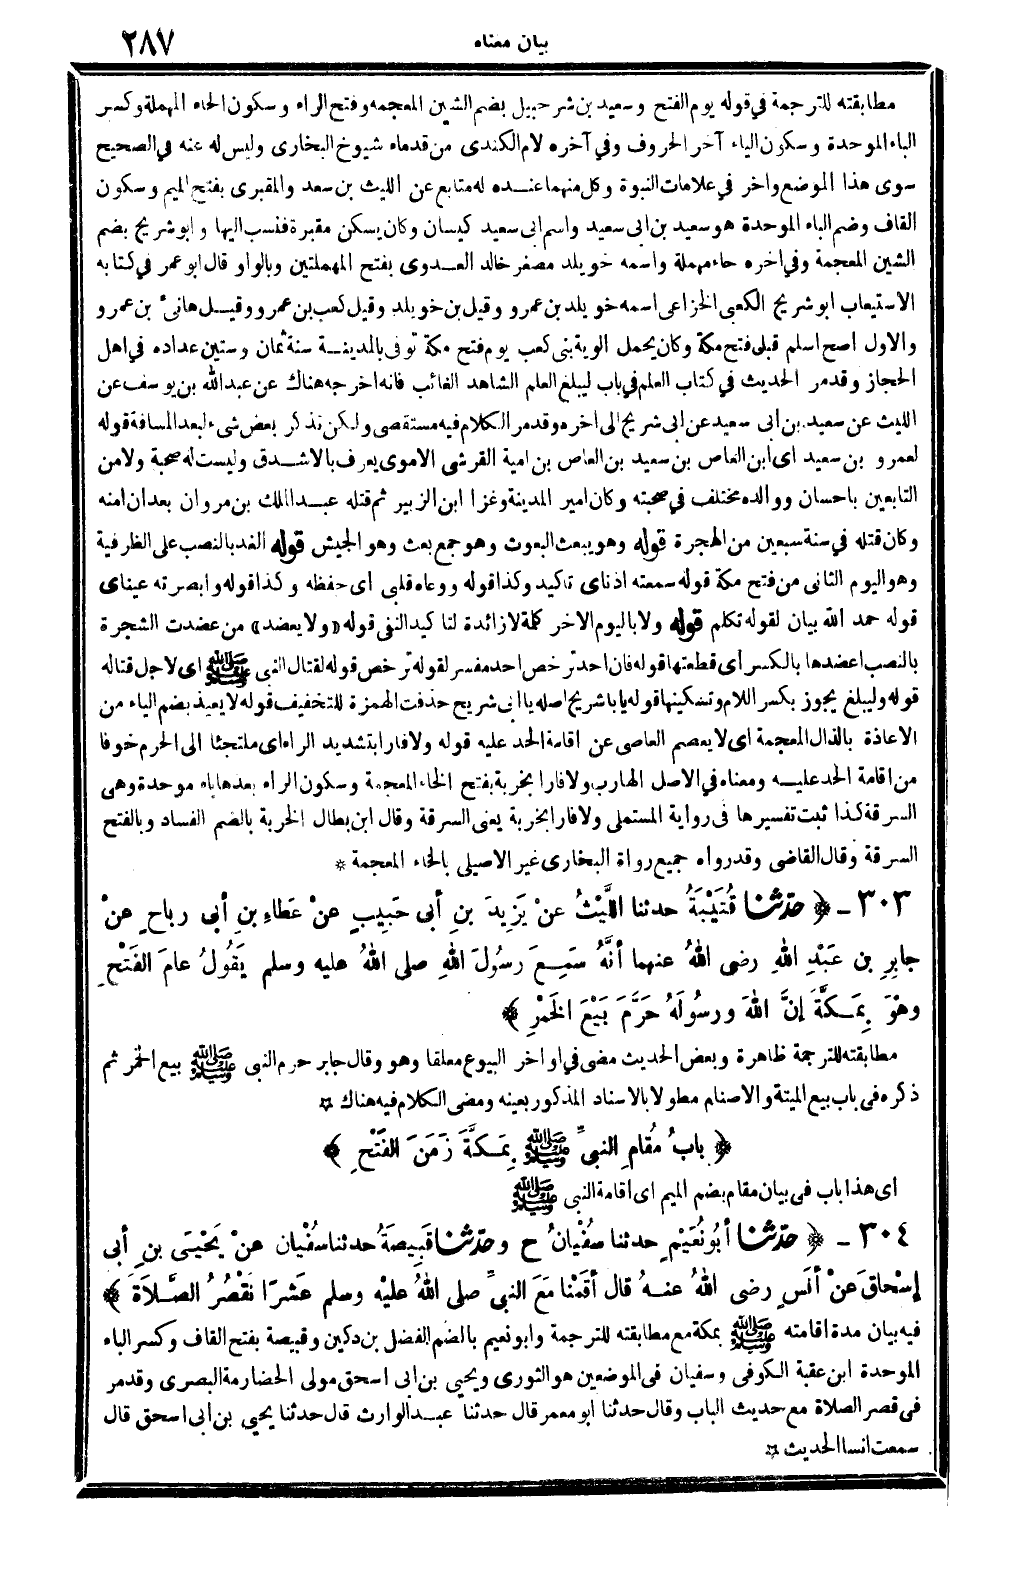 بيان معناه ٢٨٧
مطابقته للترجمة في قوله يوم الفتح وسعيد بن شرحبيل بضم الشين المعجمه وفتح الراء وسكون الحاء المهملة وكسر
الباء الموحدة وسكون الياء آخر الحروف وفي آخره لام الكندى من قدماء شيوخ البخارى وليس له عنه في الصحيح
سوى هذا الموضع واخر في علامات النبوة وكل منهما عنده له متابع عن الليث بن سعد والمقبرى بفتح الميم وسكون
القاف وضم الباء الموحدة هو سعيد بن ابى سعيد واسم ابى سعيد كيسان وكان يسكن مقبرة فنسب اليها وابو شريح بضم
الشين المعجمة وفي اخره حاء مهملة واسمه خويلد مصغر خالد العدوى بفتح المهملتين وبالواو قال ابو عمر في كتابه
الاستيعاب ابو شريح الكعبى الخزاعى اسمه خويلد بن عمرو وقيل بن خويلد وقيل كعب بن عمرو وقيل هانىء بن عمرو
والاول اصح اسلم قبل فتح مكة وكان يحمل الوية بنى كعب يوم فتح مكة توفى بالمدينة سنة ثمان وستين عداده في اهل
الحجاز وقد مر الحديث في كتاب العلم في باب ليبلغ العلم الشاهد الغائب فانه اخرجه هناك عن عبد الله بن يوسف عن
الليث عن سعيد بن ابى سعيد عن ابى شريح الى اخره وقد مر الكلام فيه مستقصى ولكن نذكر بعض شىء لبعد المسافة قوله
لعمرو بن سعيد اى ابن العاص بن سعيد بن العاص بن امية القرشى الاموى يعرف بالاشدق وليست له صحبة ولا من
التابعين باحسان ووالده مختلف في صحبته وكان امير المدينة وغزا ابن الزبير ثم قتله عبد الملك بن مروان بعد ان امنه
وكان قتله في سنة سبعين من الهجرة قوله وهو يبعث البعوث وهو جمع بعث وهو الجيش قوله الغد بالنصب على الظرفية
وهو اليوم الثانى من فتح مكة قوله سمعته اذناى تاكيد وكذا قوله ووعاه قلبى اى حفظه وكذا قوله وابصرته عيناى
قوله حمد الله بيان لقوله تكلم قوله ولا باليوم الاخر كلمة لا زائدة لتا كيد النفى قوله «ولا يعضد» من عضدت الشجرة
بالنصب اعضدها بالكسر أى قطعتها قوله فان احد ترخص احد مفسر لقوله ترخص قوله لقتال النبى ﷺ اى لاجل قتاله
قوله وليبلغ يجوز بكسر اللام وتسكينها قوله يا باشريح اصله يا ابى شريح حذفت الهمزة للتخفيف قوله لا يعيذ بضم الياء من
الاعاذة بالذال المعجمة اى لا يعصم العاصى عن اقامة الحد عليه قوله ولا فارا بتشديد الراء اى ملتجئا الى الحرم خوفا
من اقامة الحد عليه ومعناه في الاصل الهارب ولا فارا بخربة بفتح الخاء المعجمة وسكون الراء بعدها باء موحدة وهى
السرقة كذا ثبت تفسيرها فى رواية المستملى ولا فارا بخربة يعنى السرقة وقال ابن بطال الخربة بالضم الفساد وبالفتح
السرقة وقال القاضى وقد رواه جميع رواة البخارى غير الاصيلى بالخاء المعجمة *
٣٠٣ - ﴿ حَدَّثَنَا قُتَيْبَةُ حدثنا اللَّيْثُ عنْ يَزِيدَ بنِ أبى حَبِيبٍ عنْ عَطَاءِ بنِ أبى رباحٍ عنْ
جابِرِ بنِ عَبْدِ اللهِ رضى اللهُ عنهما أنَّهُ سَمِعَ رسُولَ اللهِ صلى اللهُ عليه وسلم يَقُولُ عامَ الفَتْحِ
وهْوَ بِمَكَّةَ إنَّ اللهَ ورسُولَهُ حَرَّمَ بَيْعَ الخَمْرِ ﴾
مطابقته للترجمة ظاهرة وبعض الحديث مضى في اواخر البيوع معلقا وهو وقال جابر حرم النبى ﷺ بيع الخمر ثم
ذكره فى باب بيع الميتة والاصنام مطولا بالاسناد المذكور بعينه ومضى الكلام فيه هناك *
﴿ بابُ مُقامِ النبىِّ ﷺ بِمَكَّةَ زَمَنَ الفَتْحِ ﴾
اى هذا باب فى بيان مقام بضم الميم اى اقامة النبى ﷺ
٣٠٤ - ﴿ حَدَّثَنَا أبُو نُعَيْمٍ حدثنا سفْيانُ ح وحَدَّثَنَا قَبِيصَةُ حدثنا سُفْيان عنْ يَحْيَى بنِ أبى
إسْحاقَ عنْ أنَسٍ رضى اللهُ عنهُ قال أقَمْنا مَعَ النبىِّ صلى اللهُ عليْه وسلم عَشْرًا نَقْصُرُ الصَّلاَةَ ﴾
فيه بيان مدة اقامته ﷺ بمكة مع مطابقته للترجمة وابو نعيم بالضم الفضل بن دكين وقبيصة بفتح القاف وكسر الباء
الموحدة ابن عقبة الكوفى وسفيان فى الموضعين هو الثورى ويحيى بن ابى اسحق مولى الحضارمة البصرى وقد مر
فى قصر الصلاة مع حديث الباب وقال حدثنا ابو معمر قال حدثنا عبد الوارث قال حدثنا يحيى بن ابى اسحق قال
سمعت انسا الحديث *